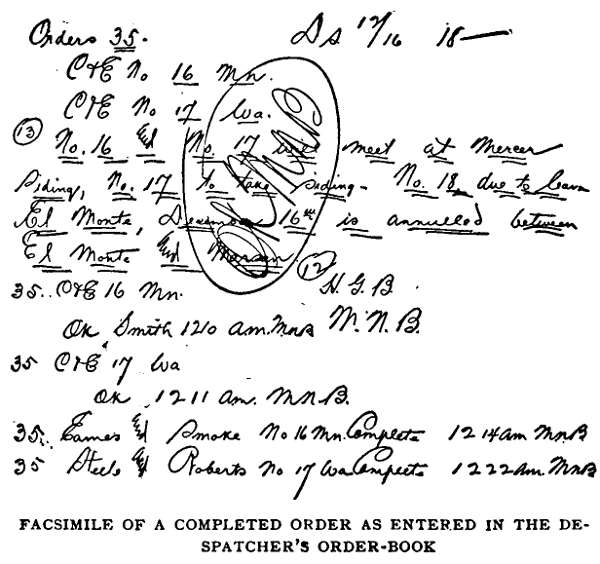 Orders 35. Ds 12/16 18—
C&E No 16 Mn.
C&E No 17 Wa.
13 No. 16 & No. 17 will meet at Mercer
Siding, No. 17 to take siding. No. 18 due to leave
El Monte, December 16th is annulled between
El Monte & Mercer. 12 H.G.B
35.. C&E 16 Mn.
OK Smith 1210 am. MnB W.N.B.
35 C&E 17 Wa
OK 1211 am. MNB.
35.. Eames & Smoke No 16 Mn. Complete 1214 am MnB
35 Steele & Roberts No 17 Wa Complete 1222 am. MnB
FACSIMILE OF A COMPLETED ORDER AS ENTERED IN THE DE-
SPATCHER'S ORDER-BOOK